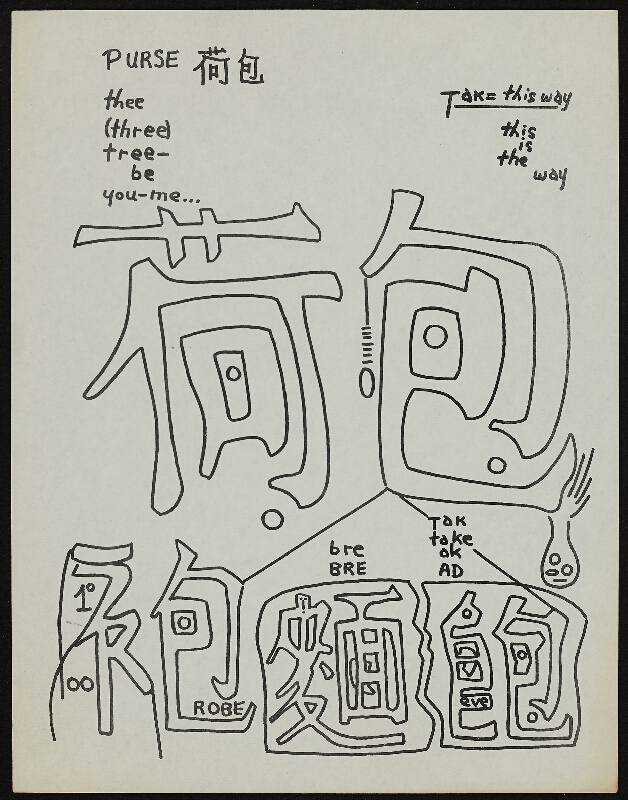 PURSE 荷包
thee
(three)
tree—
be
you-me...
Tak= this way
this
is
the
way
荷包
bre
BRE
Tak
take
ak
AD
1°
oo
袍
ROBE
麵
飽
eve